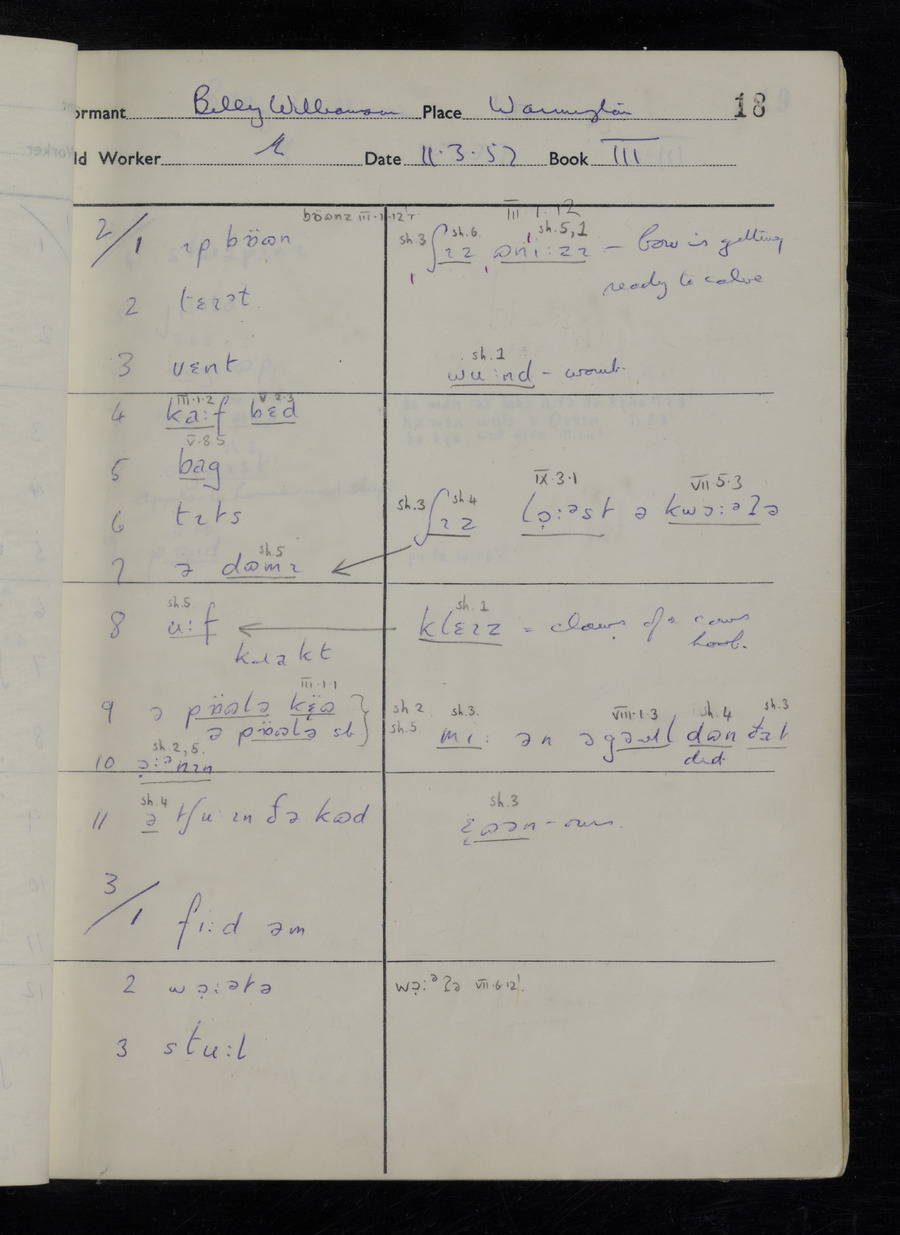 ormant Billy Williamson Place Warrington 18
ld Worker Date 11·3·57 Book III
böɷnz III·1·12 III·1·12
2/1 ɪp böɷn sh.3 sh.6. sh.5,1
ʃɪz ɷni:zɪ – Cow is getting
ready to calve
2 tɛɪət
3 vɛnt sh.1
wu:nd – womb.
III·1·2 V·2·3
4 ka:f bɛd
V·8·5
5 bag
IX·3·1 VII·5·3
6 tɪts sh.3 sh.4 ʃɪz lǫ:əst ə kwǫ:əʔə
sh.5
7 ə dɷmɪ
sh.5 sh.1
8 u:f klɛɪz = claws of a cows
hoof.
kɹakt
III·1·1
9 ə pöɷlə kɛ̈ɷ sh.2 sh.3. VIII·1·3 sh.4 sh.3
ə pöɷlə st sh.5 mi: ən əgəɹɪl dɷn ðat
did
sh.2,5.
10 ǫ:ənɪn
sh.4 sh.3
11 ə tʃu:ɪn ðə kɷd ɛɷən – own
3/1 fi:d əm
2 wǫ:ətə wǫ:əʔə VII·6·12
3 stu:l